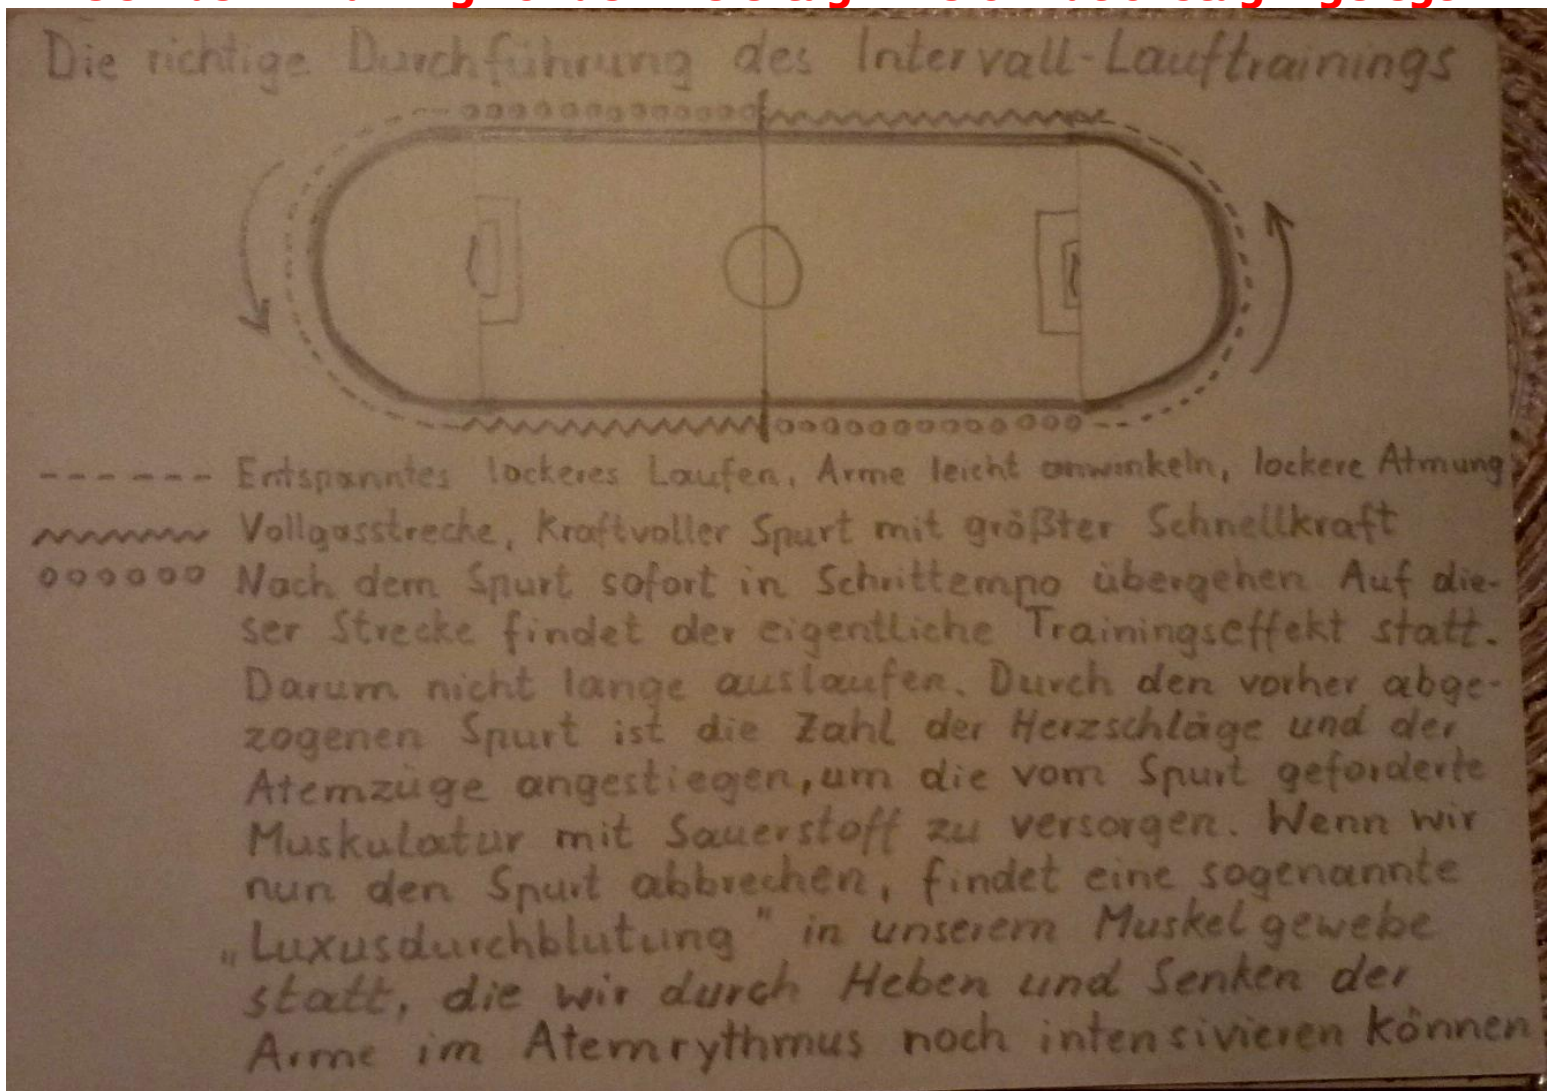 Die richtige Durchführung des Intervall-Lauftrainings
Entspanntes lockeres Laufen, Arme leicht anwinkeln, lockere Atmung
Vollgasstrecke, kraftvoller Spurt mit größter Schnellkraft
Nach dem Spurt sofort in Schrittempo übergehen Auf die-
ser Strecke findet der eigentliche Trainingseffekt statt.
Darum nicht lange auslaufen. Durch den vorher abge-
zogenen Spurt ist die Zahl der Herzschläge und der
Atemzüge angestiegen, um die vom Spurt geforderte
Muskulatur mit Sauerstoff zu versorgen. Wenn wir
nun den Spurt abbrechen, findet eine sogenannte
„Luxusdurchblutung" in unserem Muskelgewebe
statt, die wir durch Heben und Senken der
Arme im Atemrythmus noch intensivieren können